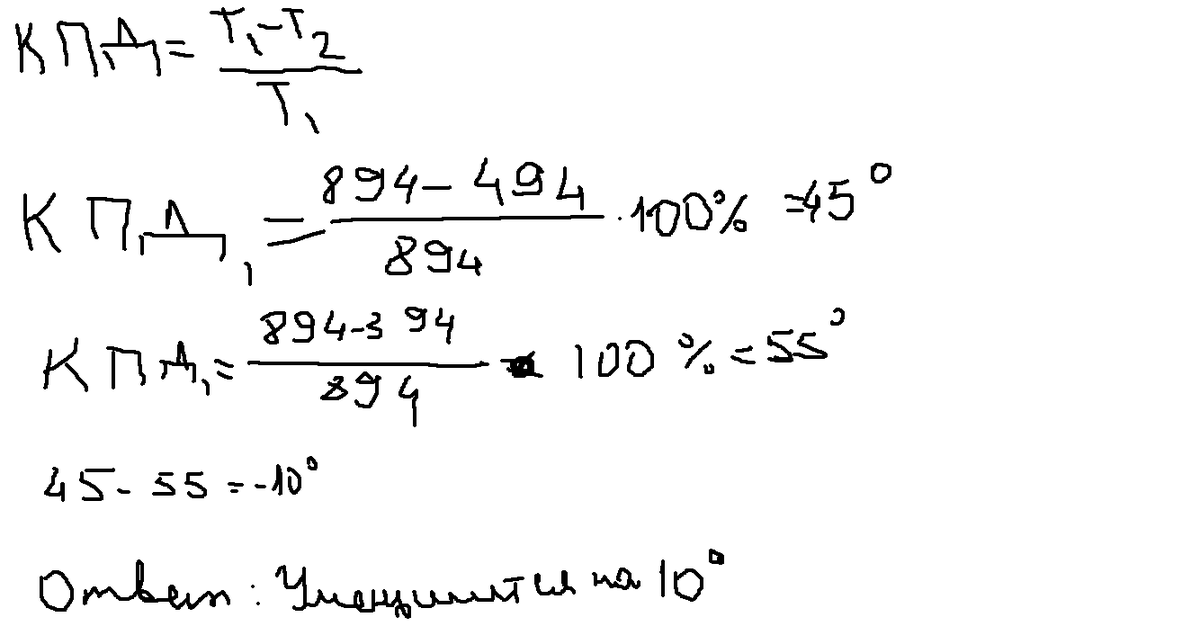 КПД = (T₁-T₂)/T₁
КПД₁ = (894-494)/894 · 100% = 45°
КПД₁ = (894-394)/894 · 100% = 55°
45 - 55 = -10°
Ответ: Уменшится на 10°